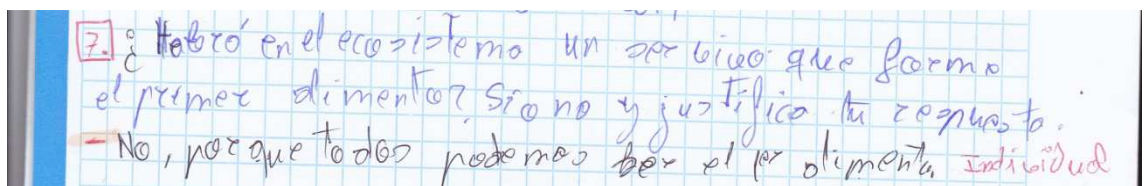 7. ¿Habrá en el ecosistema un ser vivo que forma
el primer alimento? Si o no y justifica tu respuesta.
- No, porque todos podemos ber el 1er alimento. Individual